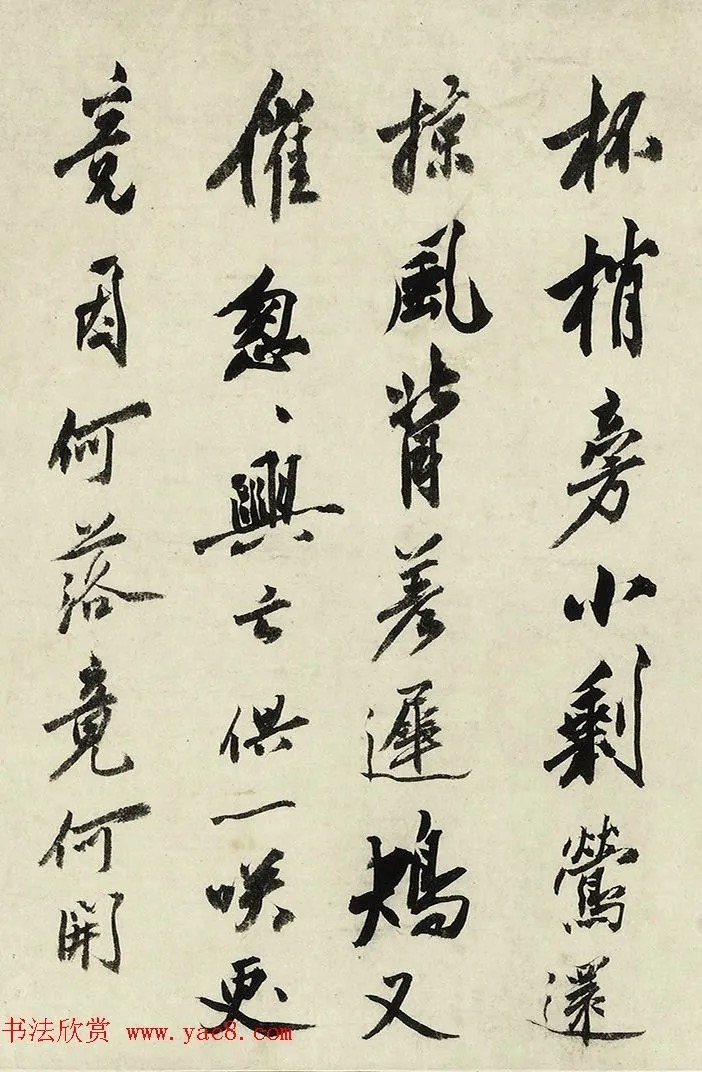 杯梢旁小剩鶯還
掠風背差遲鳩又
催怱〻興亡供一咲更
竟因何落竟何開
书法欣赏 www.yac8.com